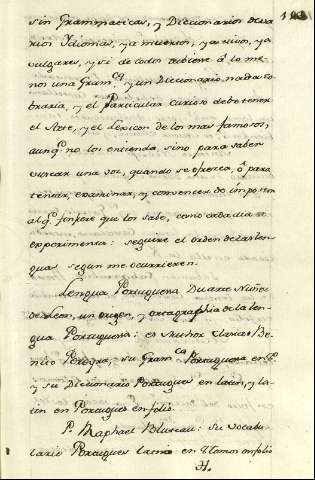 sin Grammaticas, y Diccionarios de va
rios Idiomas, ya muertos, ya vivos, ya
vulgares, y si de todos tubiere à lo me
nos una Gram.ca y un Diccionario nada so
braria, y el particular curioso debe tener
el Arte, y el Lexicon de los mas famosos,
aunq.e no los entienda, sino para saber
buscar una voz, quando se ofrezca, ò para
tentar, examinar, y convencer de impostor
al q.e finxere que los sabe, como cada dia se
experimenta: seguire el orden de las len
guas segun me ocurrieren.
Lengua Portuguesa Duarte Nuñez
de Leon, un origen, y ortographia de la len
gua Portuguesa: es Author Clasico: Be
nito Pereyra, su Gram.ca Portuguesa en
y su Diccionario Portugues en latin, y la
tin en Portugues en folio.
P. Raphael Bluteau: su Vocabu
lario Portugues latino en 8 tomos en folio
H.